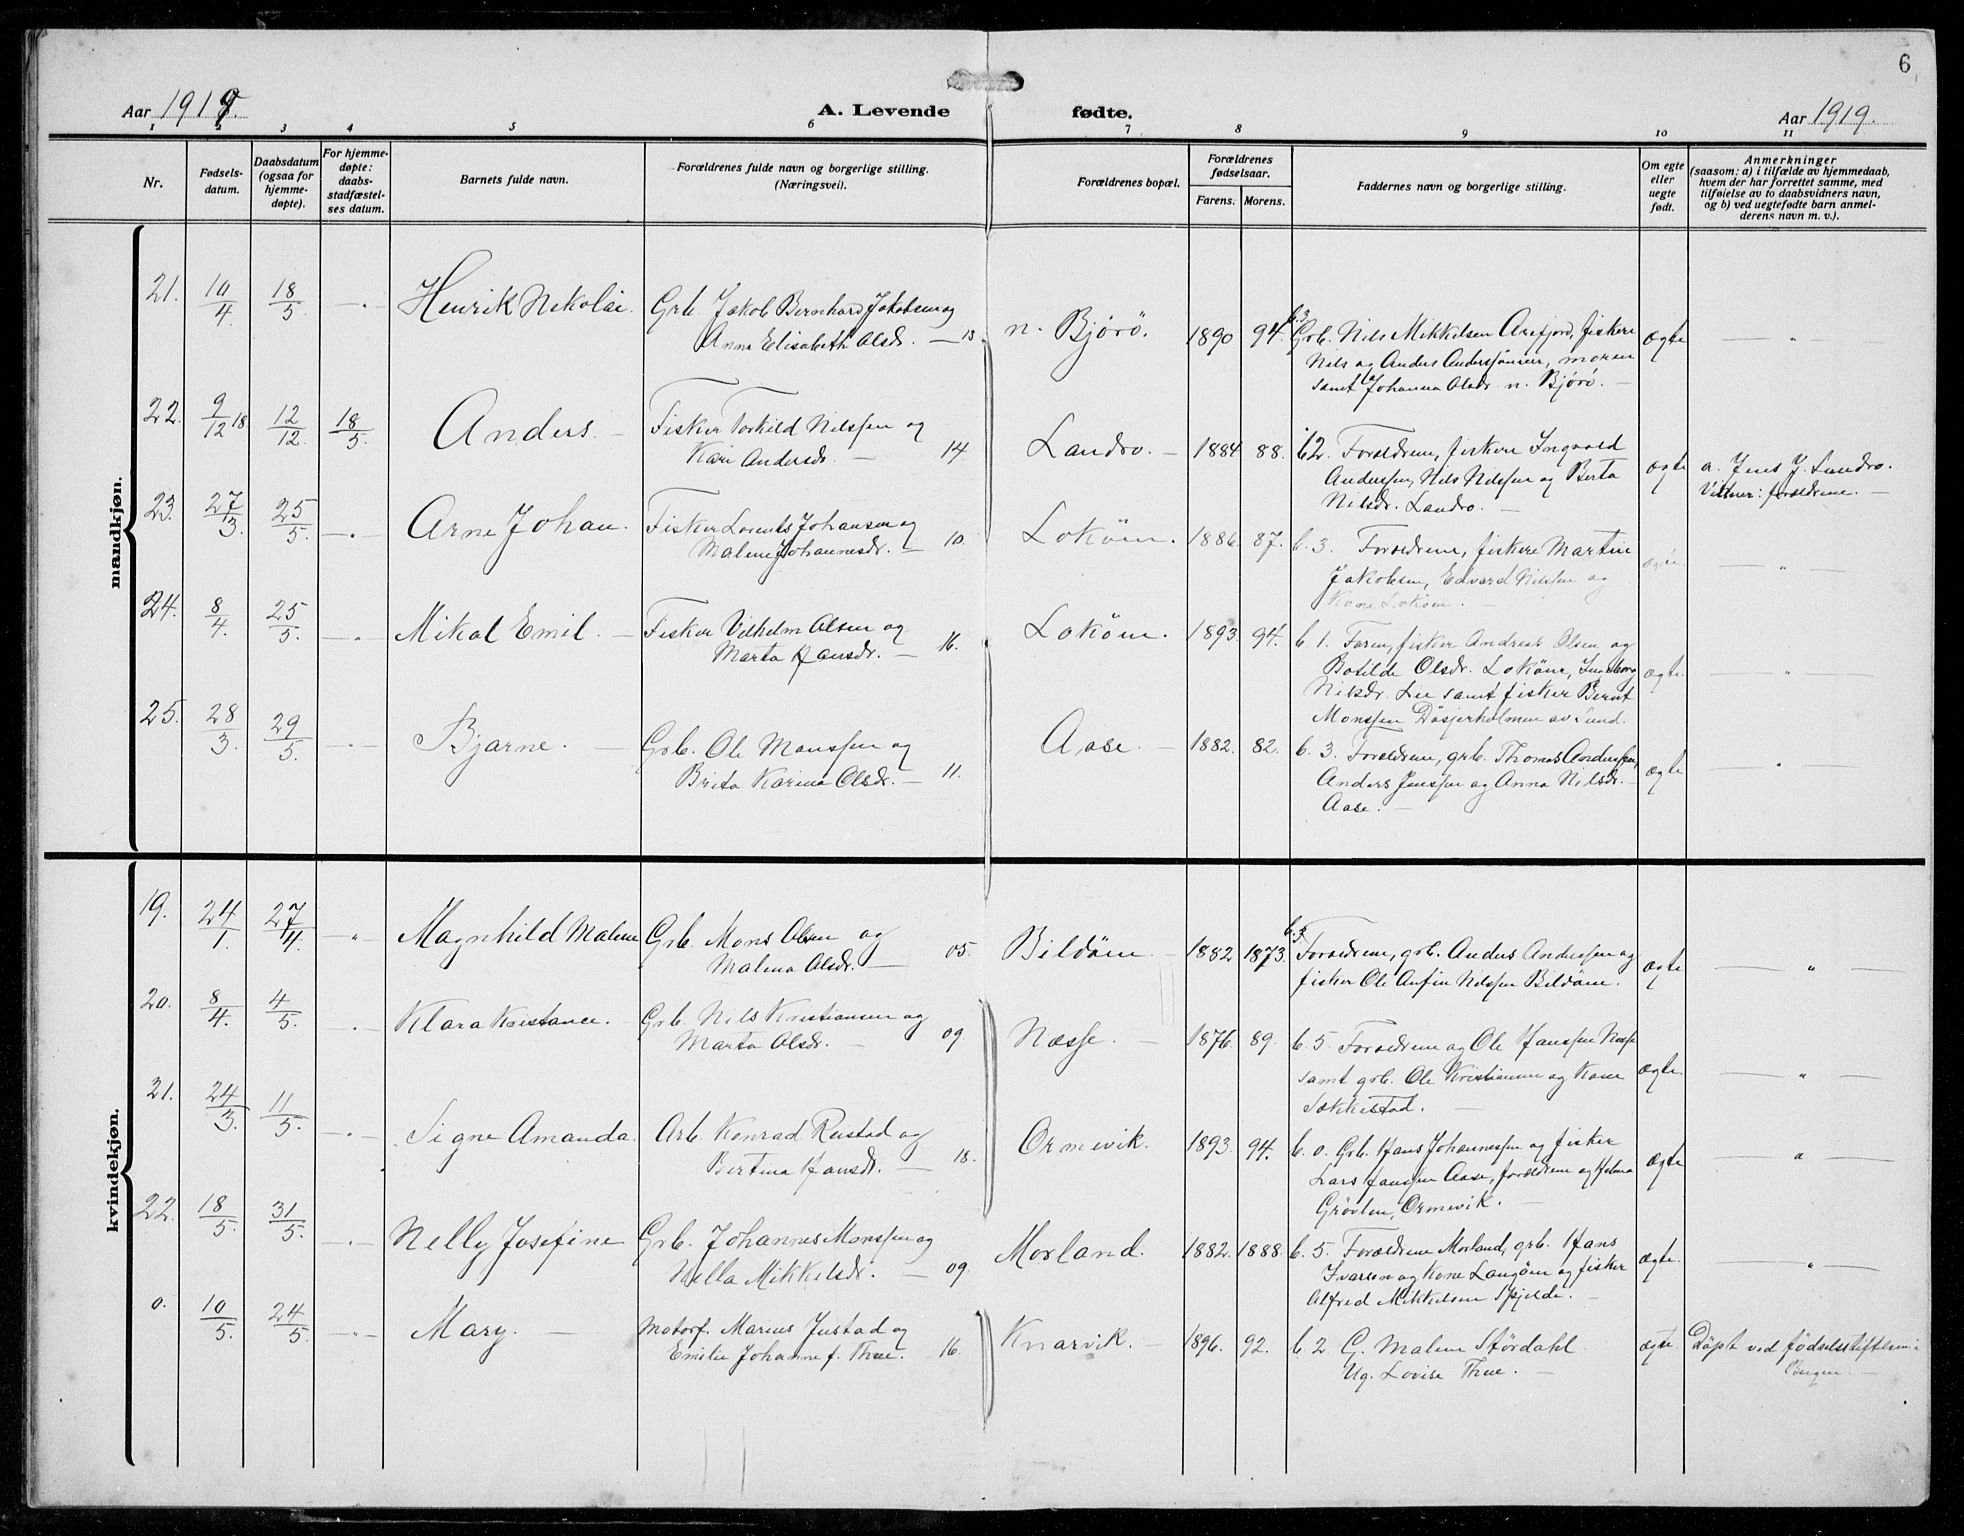 6
Aar 1919.
A. Levende fødte.
Aar 1919.
1 2 3 4 5 6 7 8 9 10 11
Nr.
Fødsels-
datum.
Daabsdatum
(ogsaa for
hjemme-
døpte).
For hjemme-
døpte:
daabs-
stadfæstel-
ses datum.
Barnets fulde navn.
Forældrenes fulde navn og borgerlige stilling.
(Næringsvei).
Forældrenes bopæl.
Forældrenes
fødselsaar.
Farens. Morens.
Faddernes navn og borgerlige stilling.
Om egte
eller
uegte
født.
Anmerkninger
(saasom: a) i tilfælde av hjemmedaab,
hvem der har forrettet samme, med
tilføielse av to daabsvidners navn,
og b) ved uegtefødte barn anmel-
derens navn m. v.).
mandkjøn.
21. 10/4 18/5 Henrik Nikolai. Grb. Jakob Bernhard Jakobsen og
Anna Elisabeth Olsdr. — 13.
n. Bjørö. 1890 94. b.3 Grb. Nils Mikkelsen Arefjord, fiskere
Nils og Anders Anderssønner, moren
samt Johanna Olsdr. n. Bjørö. —
ægte — " —
22. 9/12 18 12/12. 18/5. Anders. — Fisker Torkild Nilssen og
Kari Andersdr. — 14.
Landro. — 1884 88. b2. Forældrene, fiskere Ingvald
Anderssen, Nils Nilssen og Berta
Nilsdr. Landro. —
ægte a. Jens J. Landro.
Vidner: forældrene. —
23. 27/3. 25/5. — " — Arne Johan. Fisker Lorents Johansen og
Malene Johannesdr. — 10.
Loköen. 1886. 87. b. 3. Forældrene, fiskere Martin
Jakobsen, Edvard Nilssen og
Kone Loköen. —
ægte — " —
24. 8/4. 25/5. — " — Mikal Emil. — Fisker Vilhelm Olsen og
Marta Hansdr. — 16.
Loköen. 1893. 94. b. 1. Faren, fisker Andreas Olsen og
Botilde Olsdr. Loköen, Ingeborg
Nilsdr. Lie samt fisker Bernt
Monssen Dösjerholmen av Sund.
ægte. — " —
25. 28/3. 29/5. — " — Bjarne. — Grb. Ole Monssen og
Brita Karina Olsdr. — 11.
Aase. — 1882. 82. b. 3. Forældrene, grb. Thomas Anderssen,
Anders Jenssen og Anna Nilsdr. —
Aase. —
ægte — " —
kvindekjøn.
19. 24/1. 27/4. — " — Magnhild Malene Grb. Mons Olsen og
Malena Olsdr. — 05.
Bildöen. — 1882 1873. b.3 Forældrene, grb. Anders Anderssen og
fisker Ole Anfin Nilssen Bildöen.
ægte — " —
20. 8/4. 4/5. — " — Klara Kristance. — Grb. Nils Kristiansen og
Marta Olsdr. — 09.
Næsse. — 1876. 89. b. 5. Forældrene og Ole Hanssen Næsse
samt grb. Ole Kristiansen og Kone
Sækkestad. —
ægte. — " —
21. 24/3. 11/5. — " — Signe Amanda. Arb. Konrad Reistad og
Bertina Hansdr. — 18.
Ormevik. 1893. 94. b. 0. Grb. Hans Johannessen og fisker
Lars Hanssen Aase, forældrene og Helma
Grövlen, Ormevik. —
ægte — " —
22. 18/5. 31/5. — " — Nelly Josefine Grb. Johannes Monssen og
Nella Mikkelsdr. — 09.
Morland. 1882. 1888. b. 5. Forældrene Morland, grb. Hans
Ivarsen og Kone Langöen og fisker
Alfred Mikkelsen Spjelde. —
ægte. — " —
0. 10/5. 24/5. — " — Mary. — Motorf. Marius Justad og
Emilie Johanne f. Thue. — 16.
Knarvik. — 1896. 92. b. 2. G. Malene Stördahl.
Ug. Lovise Thue. —
ægte. Döpt ved födselsstiftelsen i
Bergen. —